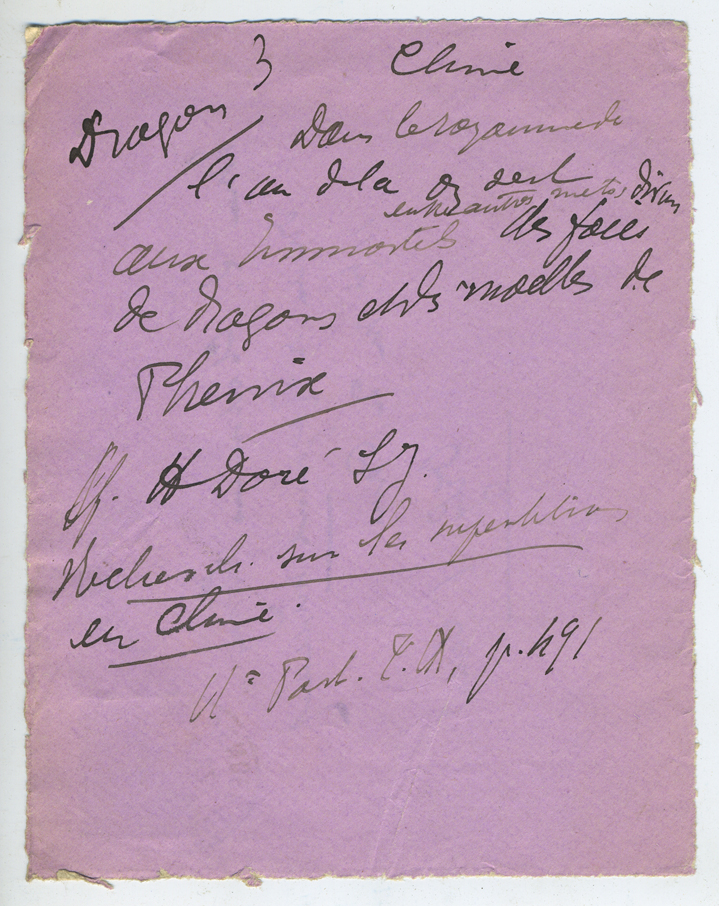 3 Chine
Dragon
Dans le royaume de
l'au dela on sert
entre autres mets divins
aux Immortels des foies
de dragons et des moelles de
Phenix
Cf. H Doré S J.
Recherch. sur les superstitions
en Chine.
IIe Part. T. IX, p. 491